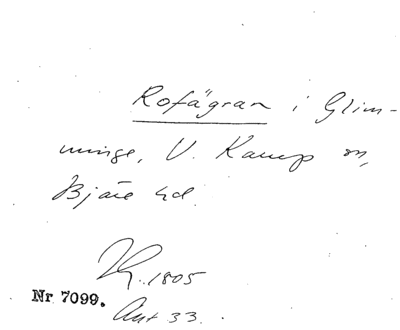 Rofägran i Glim-
minge, V. Karup sn,
Bjäre hd.
1805
Nr 7099.
Ant 33.